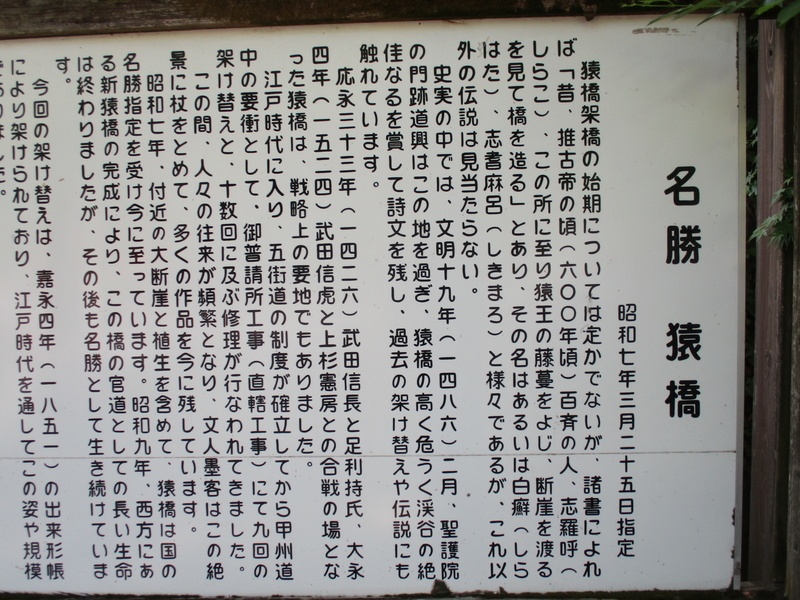 名勝　猿橋
昭和七年三月二十五日指定
猿橋架橋の始期については定かでないが、諸書によれ
ば「昔、推古帝の頃（六〇〇年頃）百斉の人、志羅呼（
しらこ）、この所に至り猿王の藤蔓をよじ、断崖を渡る
を見て橋を造る」とあり、その名はあるいは白癬（しら
はた）、志耆麻呂（しきまろ）と様々であるが、これ以
外の伝説は見当たらない。
史実の中では、文明十九年（一四八六）二月、聖護院
の門跡道興はこの地を過ぎ、猿橋の高く危うく渓谷の絶
佳なるを賞して詩文を残し、過去の架け替えや伝説にも
触れています。
応永三十三年（一四二六）武田信長と足利持氏、大永
四年（一五二四）武田信虎と上杉憲房との合戦の場とな
った猿橋は、戦略上の要地でもありました。
江戸時代に入り、五街道の制度が確立してから甲州道
中の要衝として、御普請所工事（直轄工事）にて九回の
架け替えと、十数回に及ぶ修理が行なわれてきました。
この間、人々の往来が頻繁となり、文人墨客はこの絶
景に杖をとめて、多くの作品を今に残しています。
昭和七年、付近の大断崖と植生を含めて、猿橋は国の
名勝指定を受け今に至っています。昭和九年、西方にあ
る新猿橋の完成により、この橋の官道としての長い生命
は終わりましたが、その後も名勝として生き続けていま
す。
今回の架け替えは、嘉永四年（一八五一）の出来形帳
により架けられており、江戸時代を通してこの姿や規模
でありました。